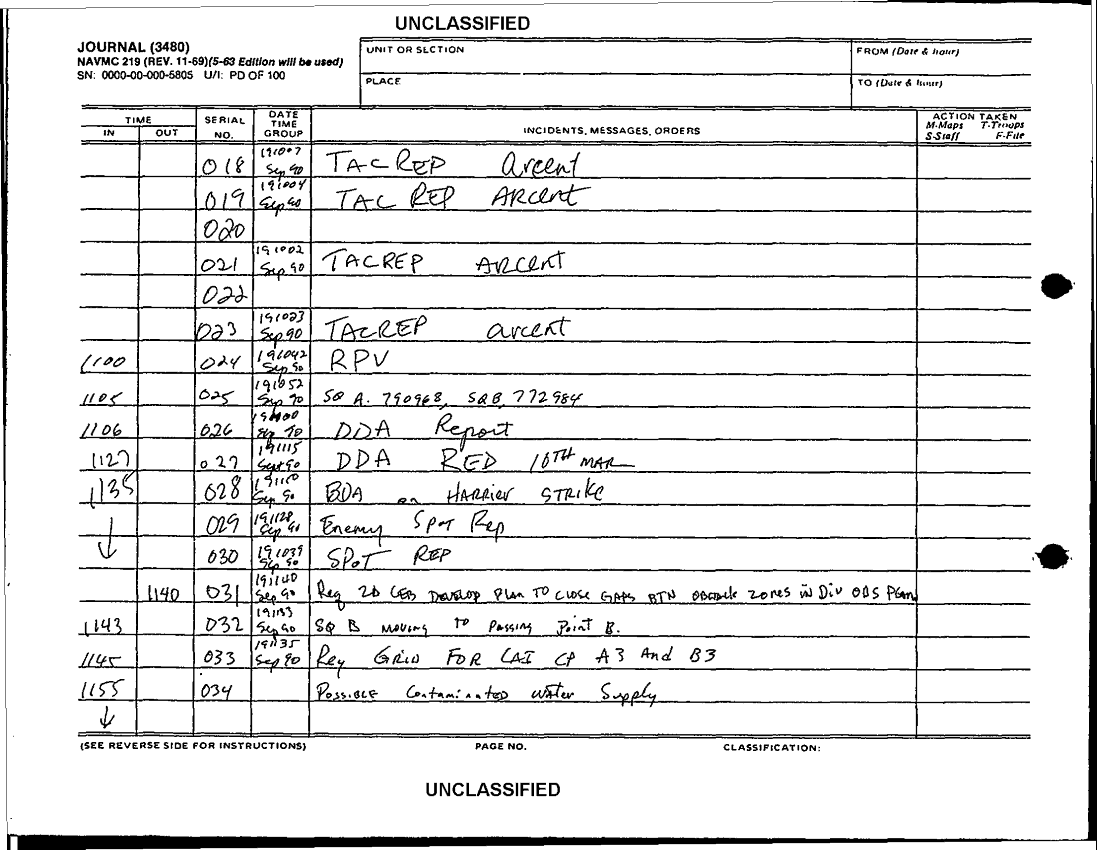 UNCLASSIFIED
JOURNAL (3480)
NAVMC 219 (REV. 11-69)(5-63 Edition will be used)
SN: 0000-00-000-5805 U/I: PD OF 100
UNIT OR SECTION
FROM (Date & hour)
PLACE
TO (Date & hour)
TIME
IN OUT
SERIAL NO.
DATE TIME GROUP
INCIDENTS, MESSAGES, ORDERS
ACTION TAKEN
M-Maps T-Troops
S-Staff F-File
018 191007 Sep 90 TACREP Arcent
019 191004 Sep 90 TAC REP ARcent
020
021 191002 Sep 90 TACREP ARCent
022
023 191023 Sep 90 TACREP arcent
1100 024 191042 Sep 90 RPV
1105 025 191052 Sep 90 SQ A. 790968, SQ B, 772984
1106 026 Sep 90 DDA Report
1127 027 191115 Sept 90 DDA RED 10TH MAR
1135 028 Sep 90 BDA on HARRIER STRIKE
↓ 029 191128 Sep 90 Enemy Spot Rep
030 191039 Sep 90 SPOT REP
1140 031 191140 Sep 90 Req 2D CEB DEVELOP PLAN TO CLOSE GAPS BTN obstacle zones in Div OBS PLAN
1143 032 191133 Sep 90 SQ B moving to Passing Point B.
1145 033 191135 Sep 90 Req GRID FOR LAI CP A3 And B3
1155 034 Possible Contaminated water Supply
↓
(SEE REVERSE SIDE FOR INSTRUCTIONS) PAGE NO. CLASSIFICATION:
UNCLASSIFIED